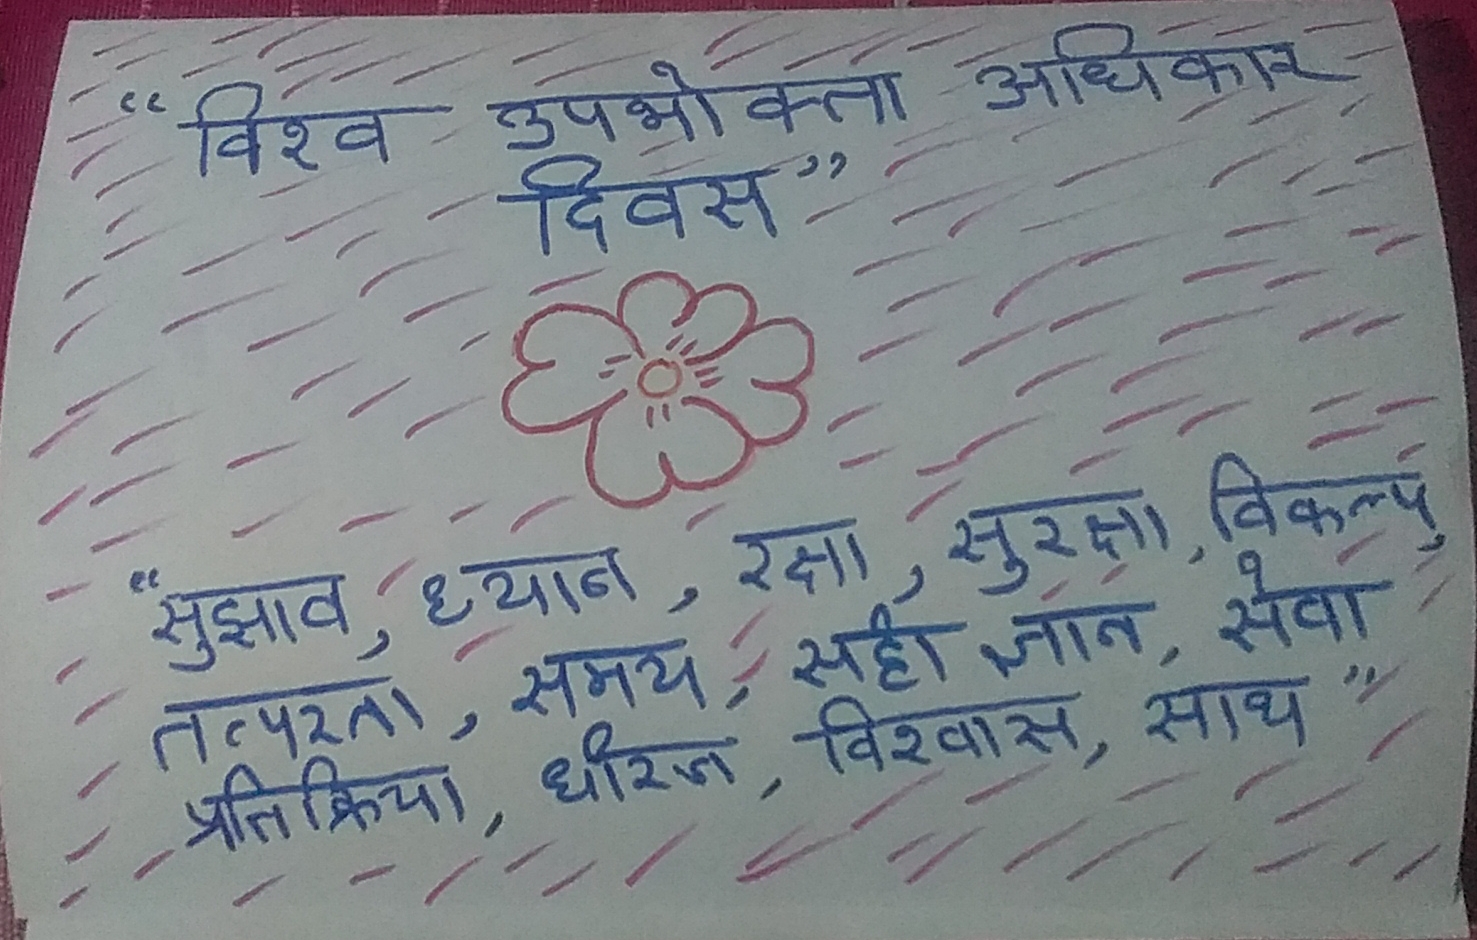 “विश्व उपभोक्ता अधिकार
दिवस”
“सुझाव, ध्यान, रक्षा, सुरक्षा, विकल्प,
तत्परता, समय, सही ज्ञान, सेवा
प्रतिक्रिया, धीरज, विश्वास, साथ”